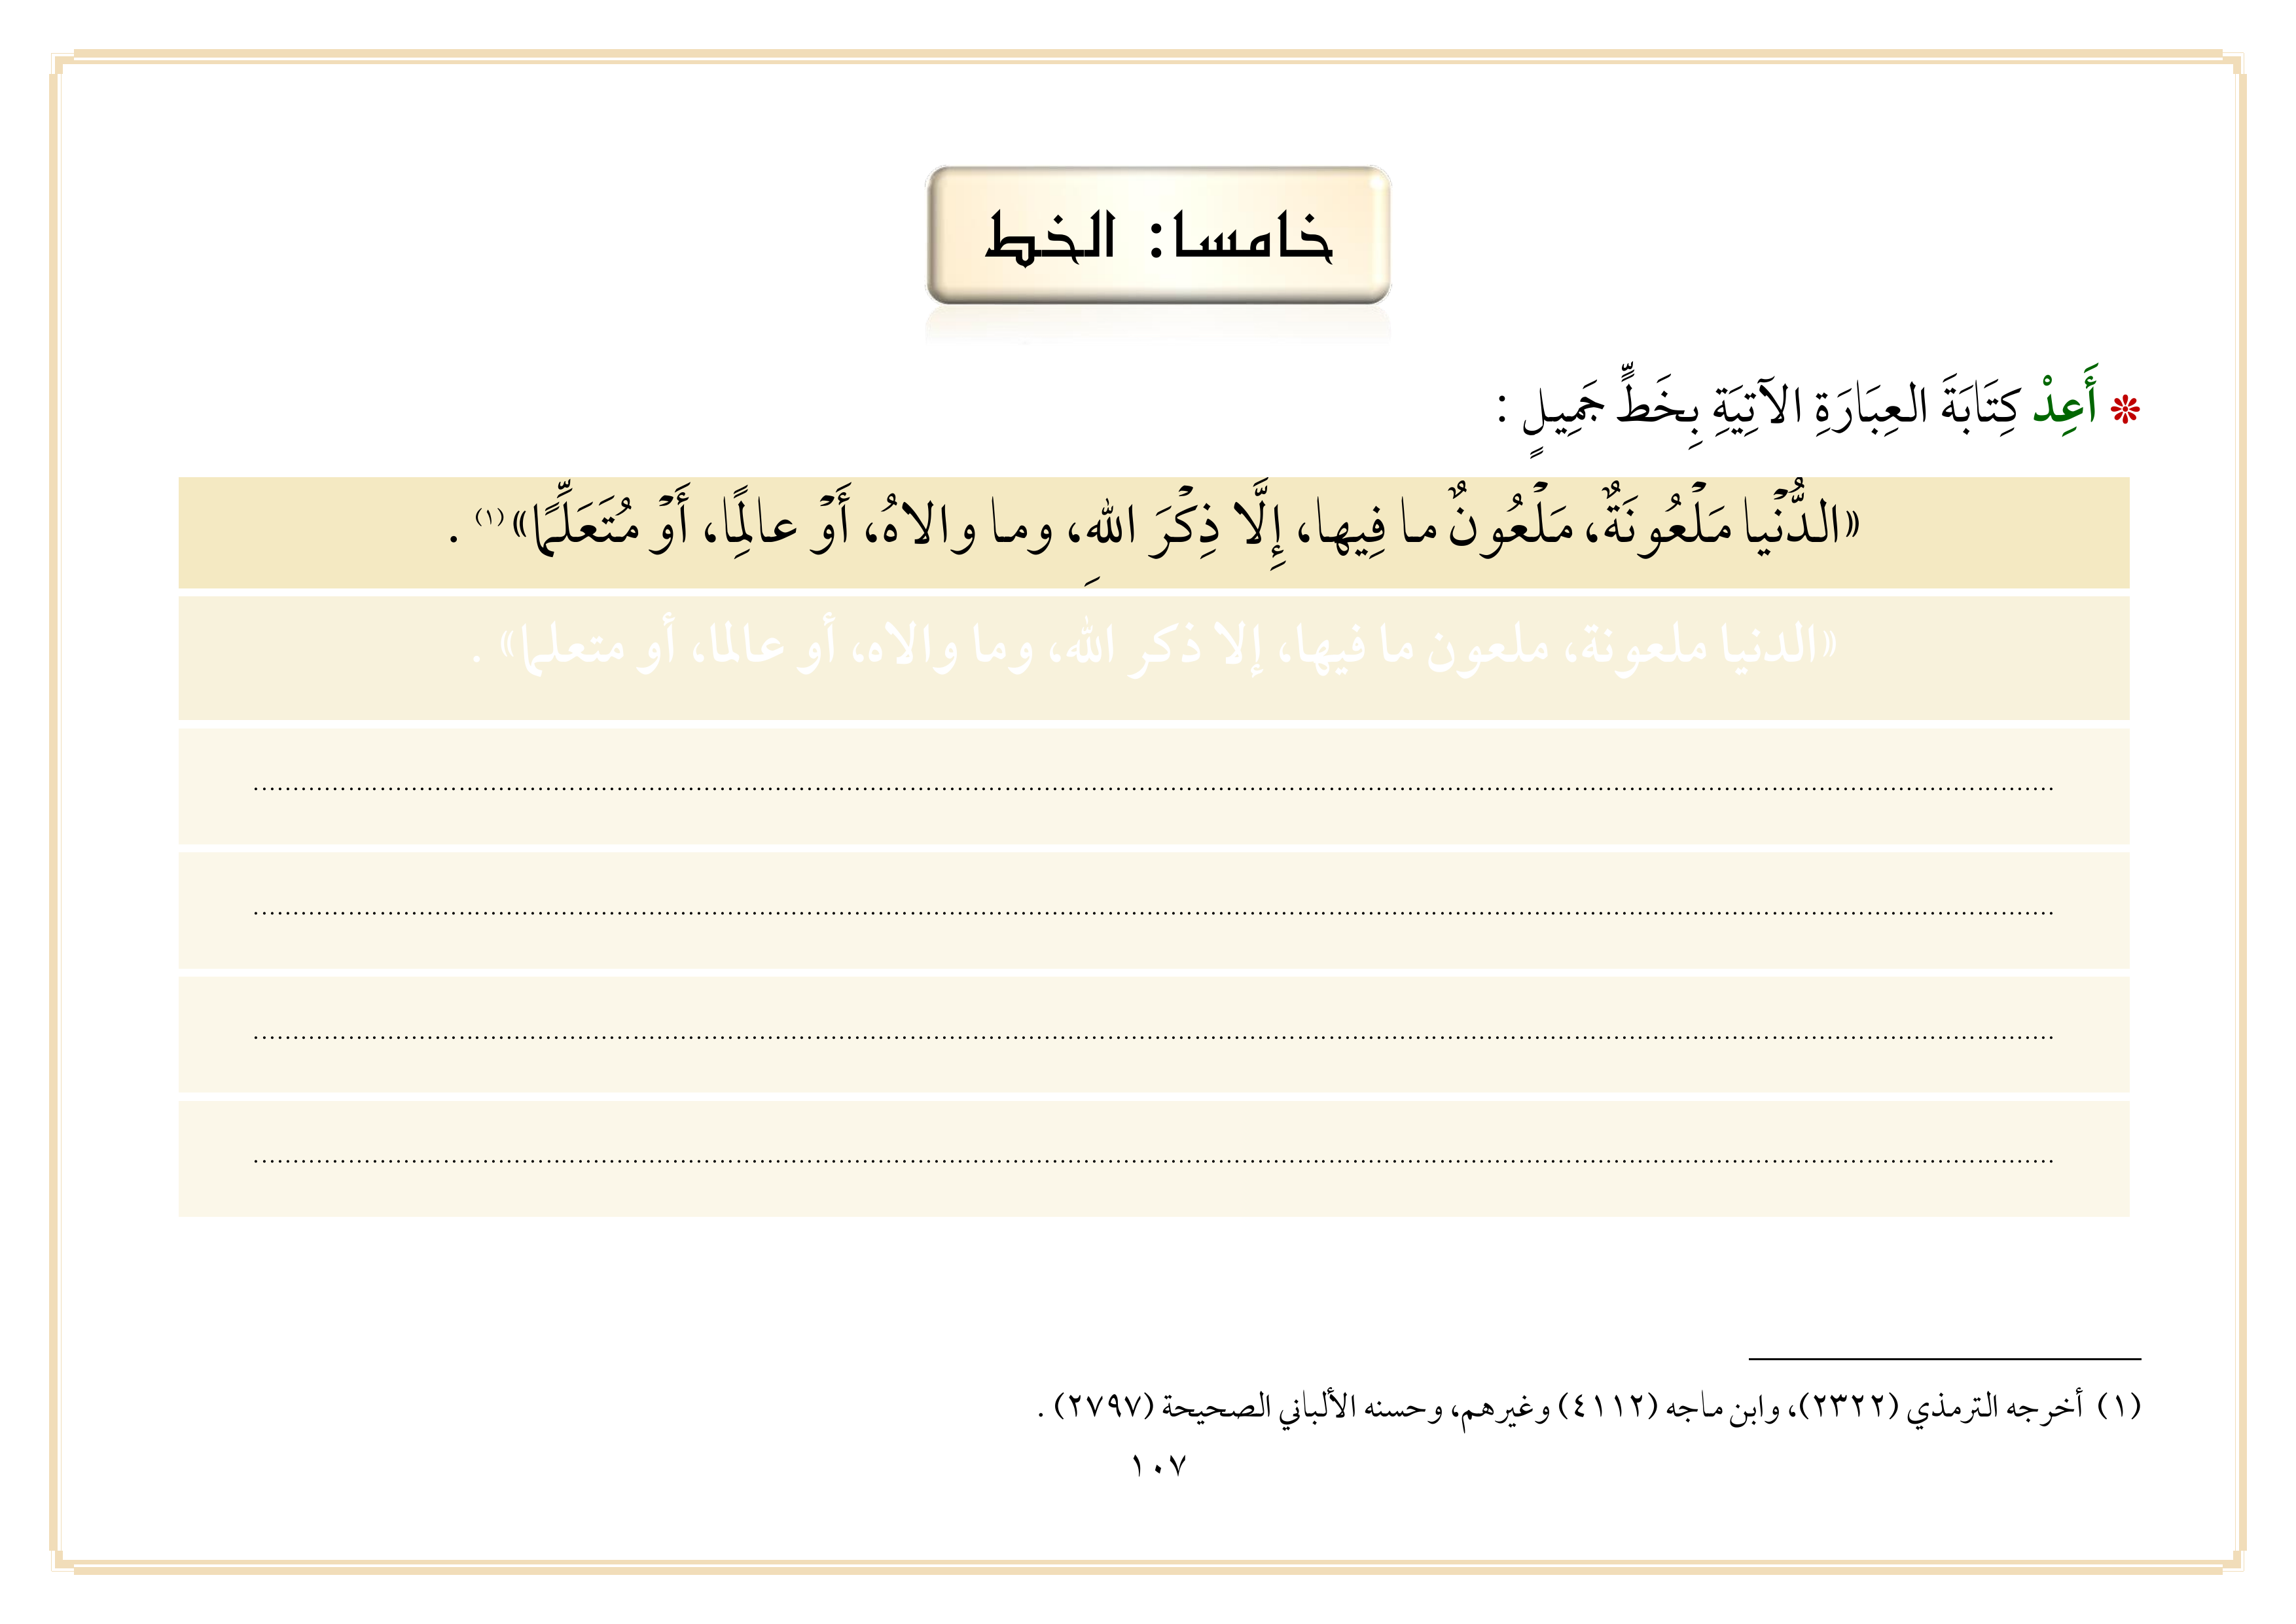 خامسا: الخط
❊ أَعِدْ كِتَابَةَ العِبَارَةِ الآتِيَةِ بِخَطٍّ جَمِيلٍ :
«الدُّنْيا مَلْعُونَةٌ، مَلْعُونٌ ما فِيها، إِلَّا ذِكْرَ اللهِ، وما والاهُ، أَوْ عالِمًا، أَوْ مُتَعَلِّمًا»(١) .
«الدنيا ملعونة، ملعون ما فيها، إلا ذكر الله، وما والاه، أو عالما، أو متعلما» .
(١) أخرجه الترمذي (٢٣٢٢)، وابن ماجه (٤١١٢) وغيرهم، وحسنه الألباني الصحيحة (٢٧٩٧) .
١٠٧